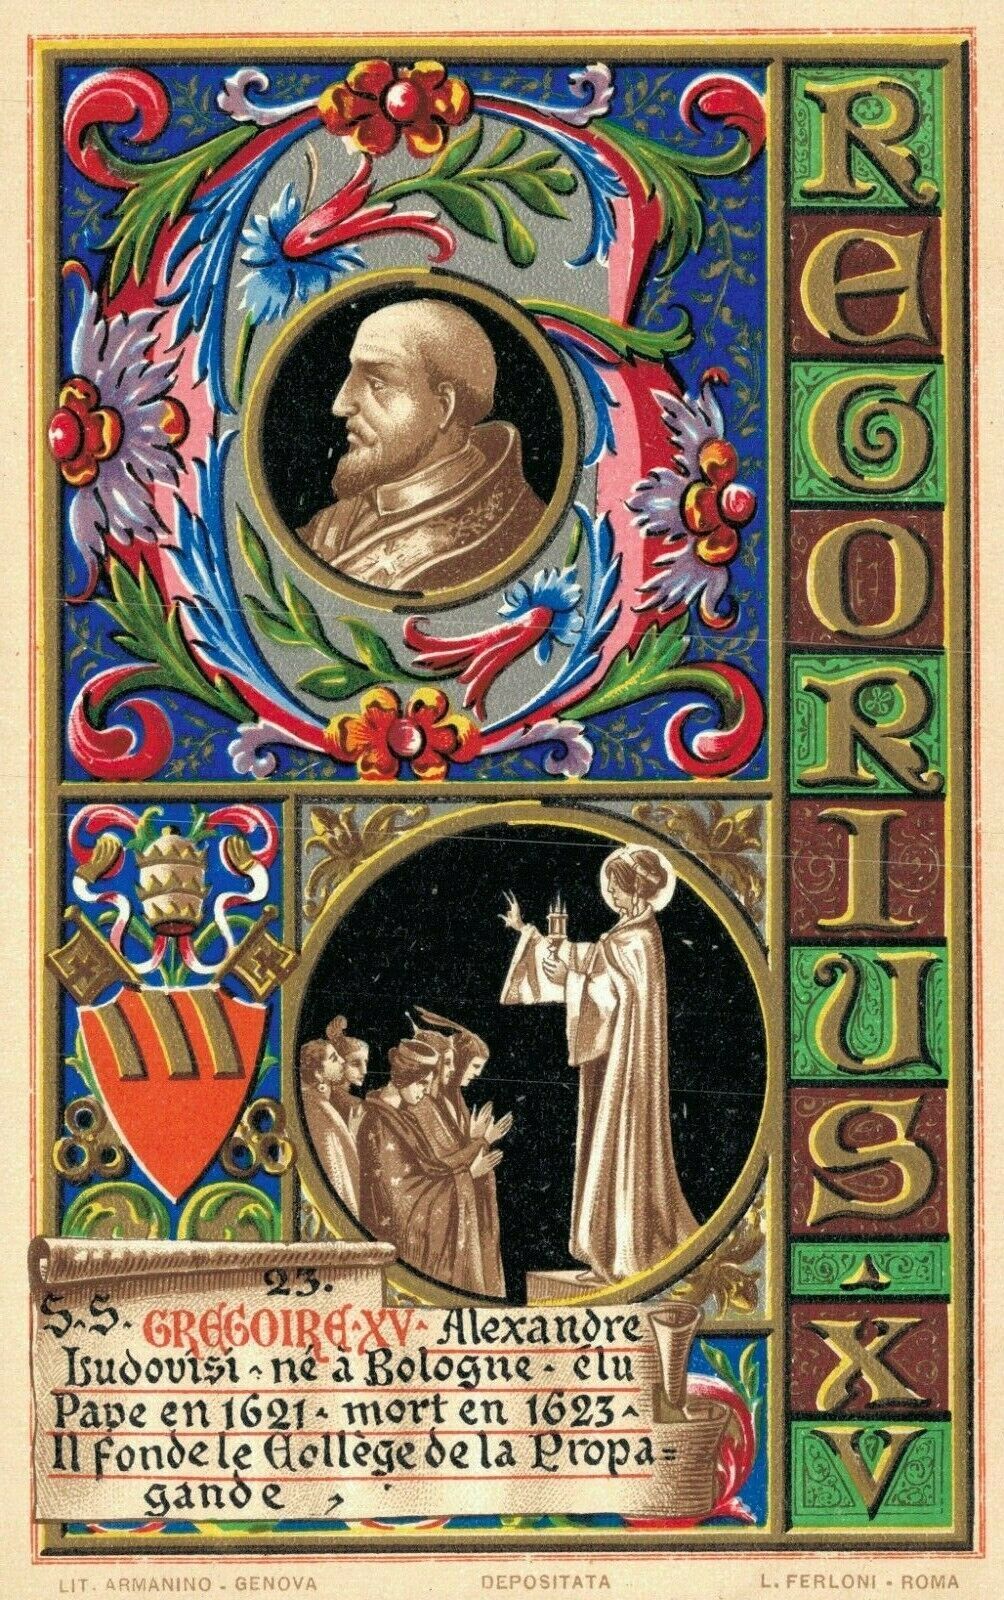 G
R
E
G
O
R
I
U
S
·
X
V
23.
S·S· GREGOIRE·XV· Alexandre
Ludovisi · né à Bologne · élu
Pape en 1621 · mort en 1623 ·
Il fonde le Collège de la Propa=
gande
LIT. ARMANINO - GENOVA DEPOSITATA L. FERLONI - ROMA